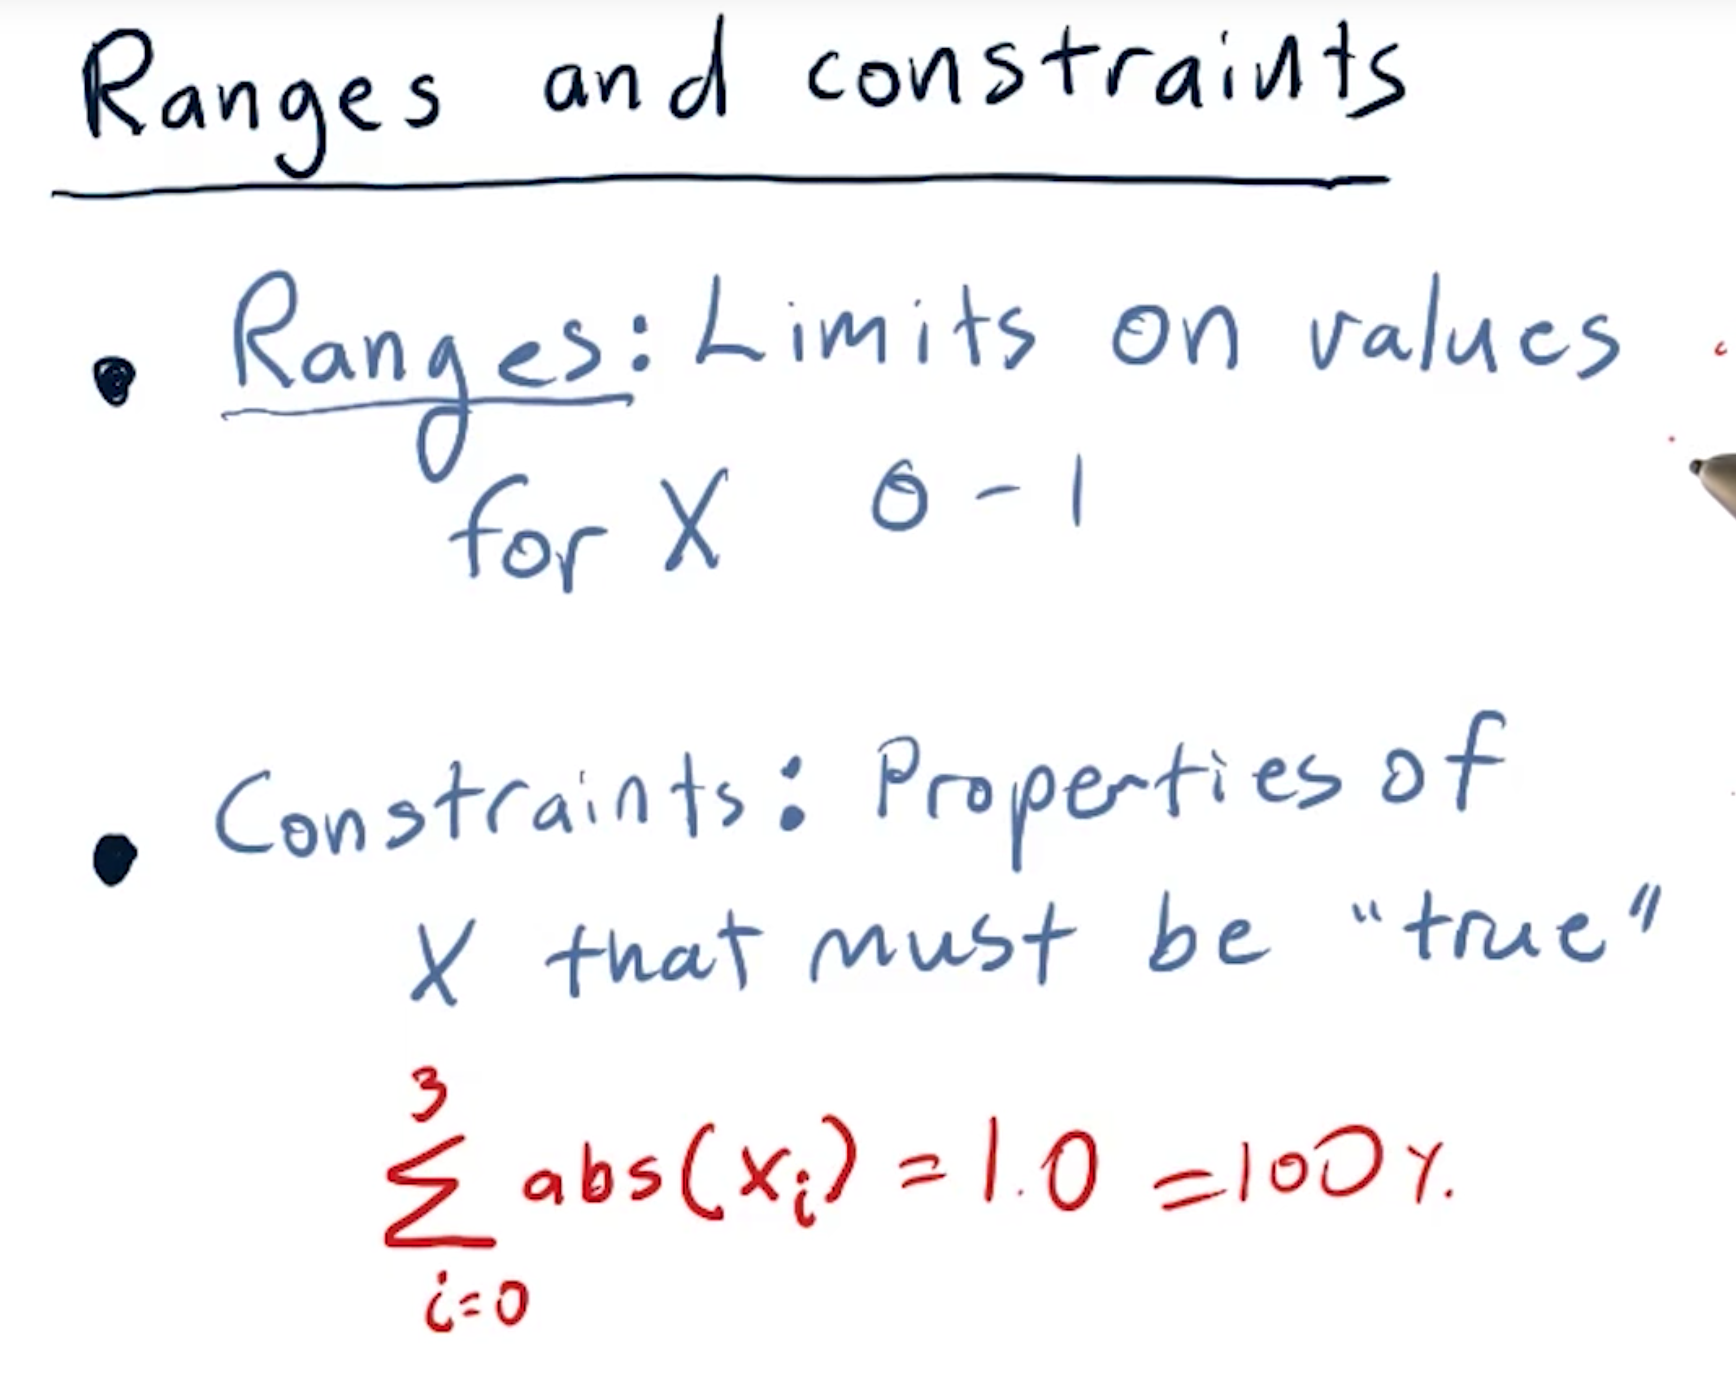 Ranges and constraints
Ranges: Limits on values
for X 0-1
Constraints: Properties of
X that must be "true"
3
∑ abs(xi) = 1.0 = 100%
i=0